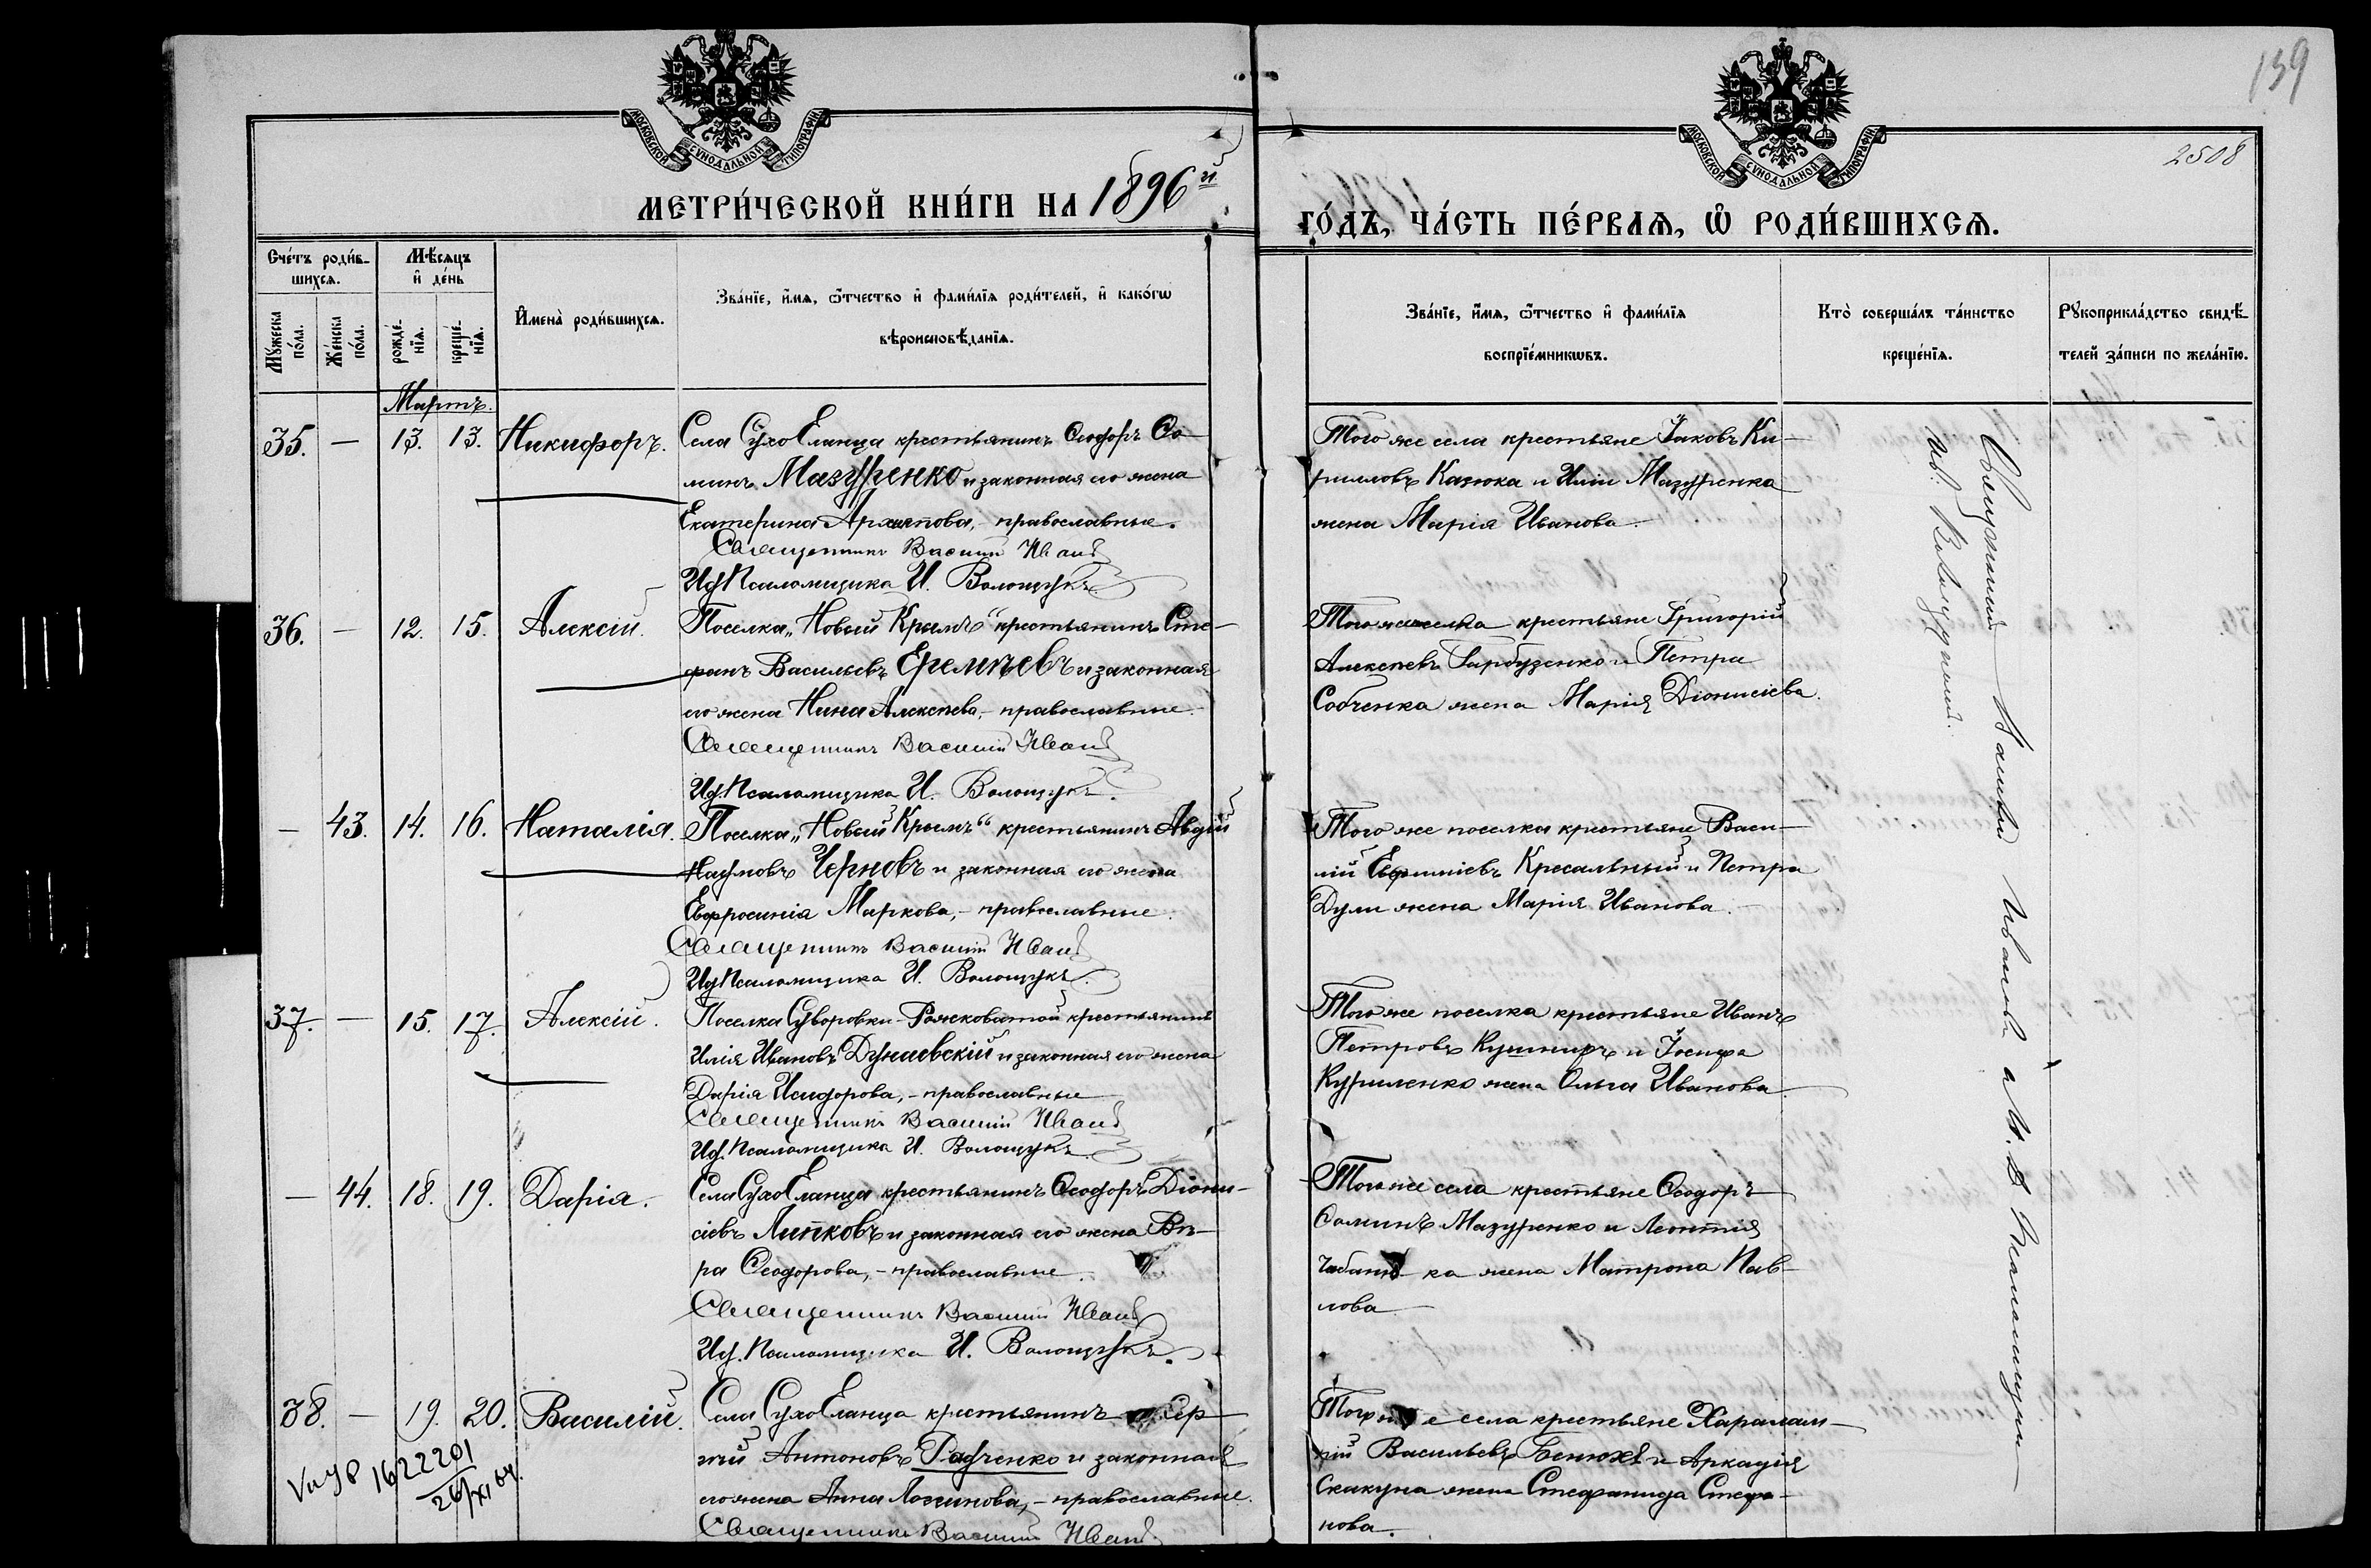 139
2508
МОСКОВСКОЙ СУНОДАЛЬНОЙ ТИПОГРАФІИ
МОСКОВСКОЙ СУНОДАЛЬНОЙ ТИПОГРАФІИ
МЕТРИ́ЧЕСКОЙ КНИ́ГИ НА 1896й
ГО́ДЪ, ЧА́СТЬ ПЕ́РВАѦ, Ѡ҆ РОДИ́ВШИХСѦ.
Сче́тъ роди́в-
шихсѧ.
Мѹ́жеска по́ла.
Же́нска по́ла.
Мѣ́сѧцъ и҆ де́нь
рожде́-нїѧ.
креще́-нїѧ.
И҆мена̀ роди́вшихсѧ.
Зва́нїе, и҆́мѧ, ѻ҆́тчество и҆ фами́лїѧ роди́телей, и҆ како́гѡ
вѣроисповѣ́данїѧ.
Зва́нїе, и҆́мѧ, ѻ҆́тчество и҆ фами́лїѧ
воспрїе́мникѡвъ.
Кто̀ соверша́лъ та́инство
креще́нїѧ.
Рѹкоприкла́дство свидѣ́-
телей за́писи по жела́нїю.
Мартъ.
35. — 13. 13. Никифоръ.
Села СухоЕланца крестьянинъ Ѳеодоръ Ѳо-
минъ Мазуренко и законная его жена
Екатерина Архипова, - православные.
Священникъ Василій Иванов
Ид. Псаломщика И. Волощукъ.
Того же села крестьяне Іаковъ Ки-
рилловъ Казюка и Иліи Мазуренка
жена Марія Иванова.
36. — 12. 15. Алексій.
Поселка „Новый Крымъ“ крестьянинъ Сте-
фанъ Васильевъ Еремѣевъ и законная
его жена Нина Алексѣева, - православные.
Священникъ Василій Иванов
Ид. Псаломщика И. Волощукъ.
Того же поселка крестьяне Григорій
Алексѣевъ Гарбузенко и Петра
Собченка жена Марія Діонисіева.
— 43. 14. 16. Наталія.
Поселка „Новый Крымъ“ крестьянинъ Авдій
Наумовъ Черновъ и законная его жена
Евфросинія Маркова, - православные.
Священникъ Василій Иванов
Ид. Псаломщика И. Волощукъ.
Того же поселка крестьяне Васи-
лій Евфиміевъ Кресальный и Петра
Дули жена Марія Иванова.
37. — 15. 17. Алексій.
Поселка Суворовки-Рожковатой крестьянинъ
Илія Ивановъ Дунаевскій и законная его жена
Дарія Исидорова, - православные
Священникъ Василій Иванов
Ид. Псаломщика И. Волощукъ.
Того же поселка крестьяне Иванъ
Петровъ Кушниръ и Іосифа
Куриленко жена Ольга Иванова.
— 44. 18. 19. Дарія.
Села СухоЕланца крестьянинъ Ѳеодоръ Діони-
сіевъ Липковъ и законная его жена Вѣ-
ра Ѳеодорова, - православные.
Священникъ Василій Иванов
Ид. Псаломщика И. Волощукъ.
Того же села крестьяне Ѳеодоръ
Ѳоминъ Мазуренко и Леонтія
Чабаню-ка жена Матрона Пав-
лова.
38. — 19. 20. Василій.
Села СухоЕланца крестьянинъ Сер-
гій Антоновъ Радченко и законная
его жена Анна Логинова, - православные.
Священникъ Василій Иванов
Того же села крестьяне Харалам-
пій Васильевъ Бенюхъ и Аркадія
Скакуна жена Стефанида Стефа-
нова.
1622201
26/XI 64.
Священникъ Василій Ивановъ